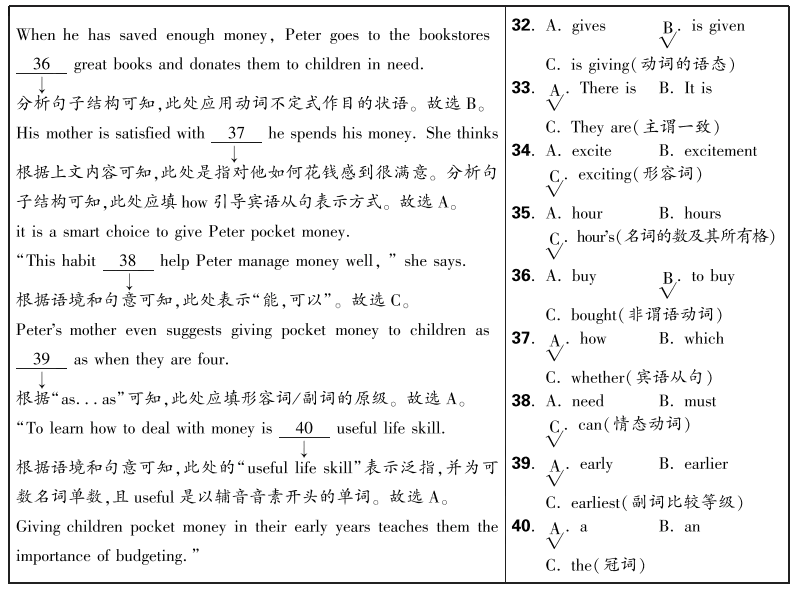 When he has saved enough money, Peter goes to the bookstores
36 great books and donates them to children in need.
分析句子结构可知,此处应用动词不定式作目的状语。故选 B。
His mother is satisfied with 37 he spends his money. She thinks
根据上文内容可知,此处是指对他如何花钱感到很满意。分析句
子结构可知,此处应填 how 引导宾语从句表示方式。故选 A。
it is a smart choice to give Peter pocket money.
“This habit 38 help Peter manage money well, ” she says.
根据语境和句意可知,此处表示“能,可以”。故选 C。
Peter’s mother even suggests giving pocket money to children as
39 as when they are four.
根据“as. . . as”可知,此处应填形容词/副词的原级。故选 A。
“To learn how to deal with money is 40 useful life skill.
根据语境和句意可知,此处的“useful life skill”表示泛指,并为可
数名词单数,且 useful 是以辅音音素开头的单词。故选 A。
Giving children pocket money in their early years teaches them the
importance of budgeting. ”
32. A. gives B. is given
C. is giving(动词的语态)
33. A. There is B. It is
C. They are(主谓一致)
34. A. excite B. excitement
C. exciting(形容词)
35. A. hour B. hours
C. hour’s(名词的数及其所有格)
36. A. buy B. to buy
C. bought(非谓语动词)
37. A. how B. which
C. whether(宾语从句)
38. A. need B. must
C. can(情态动词)
39. A. early B. earlier
C. earliest(副词比较等级)
40. A. a B. an
C. the(冠词)